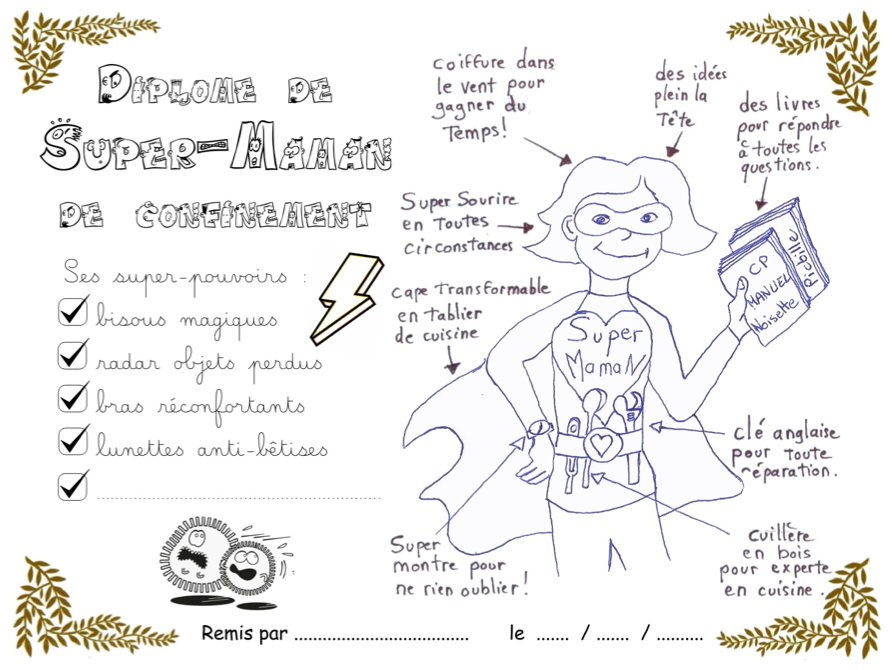 Diplome de
Super-Maman
de confinement
Ses super-pouvoirs :
bisous magiques
radar objets perdus
bras réconfortants
lunettes anti-bêtises
coiffure dans
le vent pour
gagner du
Temps!
des idées
plein la
Tête
des livres
pour répondre
à toutes les
questions.
Super Sourire
en Toutes
circonstances
cape Transformable
en tablier
de cuisine
CP
MANUEL
Noisette
Picbille
Super
MamaN
clé anglaise
pour toute
réparation.
Cuillère
en bois
pour experte
en cuisine.
Super
montre pour
ne rien oublier!
Remis par ................................... le ....... / ....... / ..........